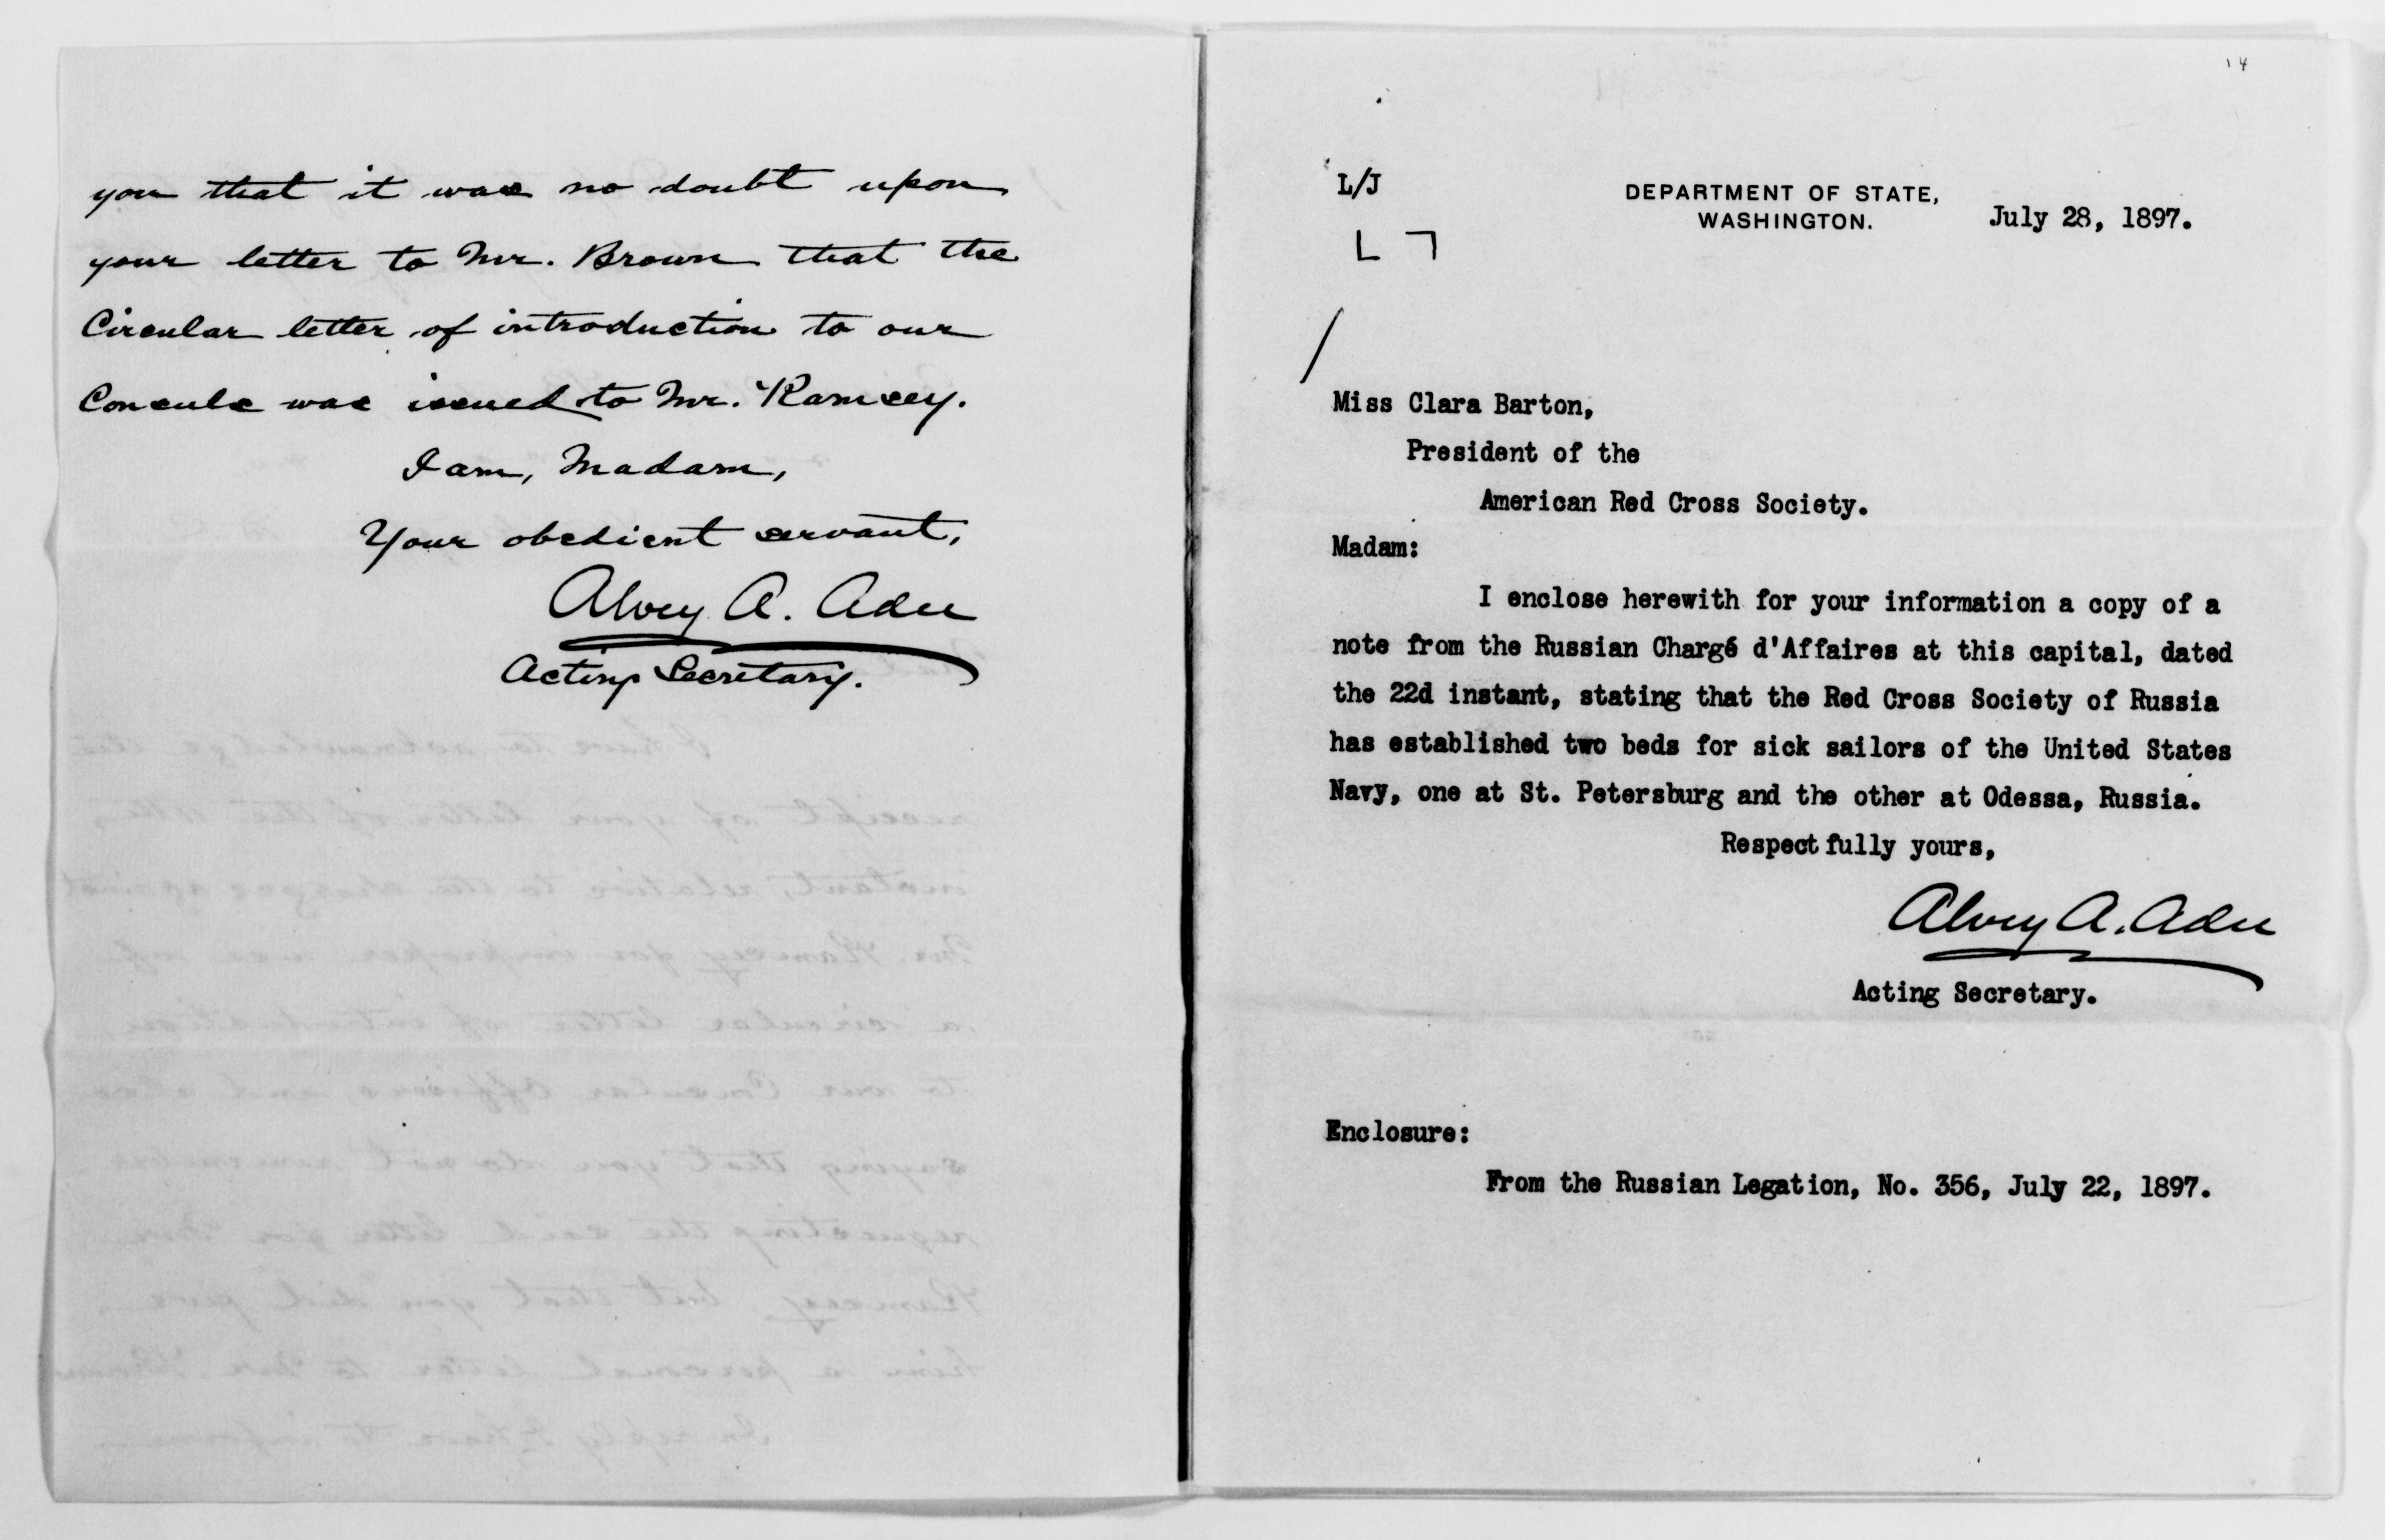 you that it was no doubt upon
your letter to Mr. Brown that the
Circular letter of introduction to our
Consuls was issued to Mr. Ramsey.
I am, Madam,
Your obedient servant,
Alvey A. Adee
Acting Secretary.
14
L/J
DEPARTMENT OF STATE,
WASHINGTON.
July 28, 1897.
Miss Clara Barton,
President of the
American Red Cross Society.
Madam:
I enclose herewith for your information a copy of a
note from the Russian Chargé d'Affaires at this capital, dated
the 22d instant, stating that the Red Cross Society of Russia
has established two beds for sick sailors of the United States
Navy, one at St. Petersburg and the other at Odessa, Russia.
Respectfully yours,
Alvey A. Adee
Acting Secretary.
Enclosure:
From the Russian Legation, No. 356, July 22, 1897.